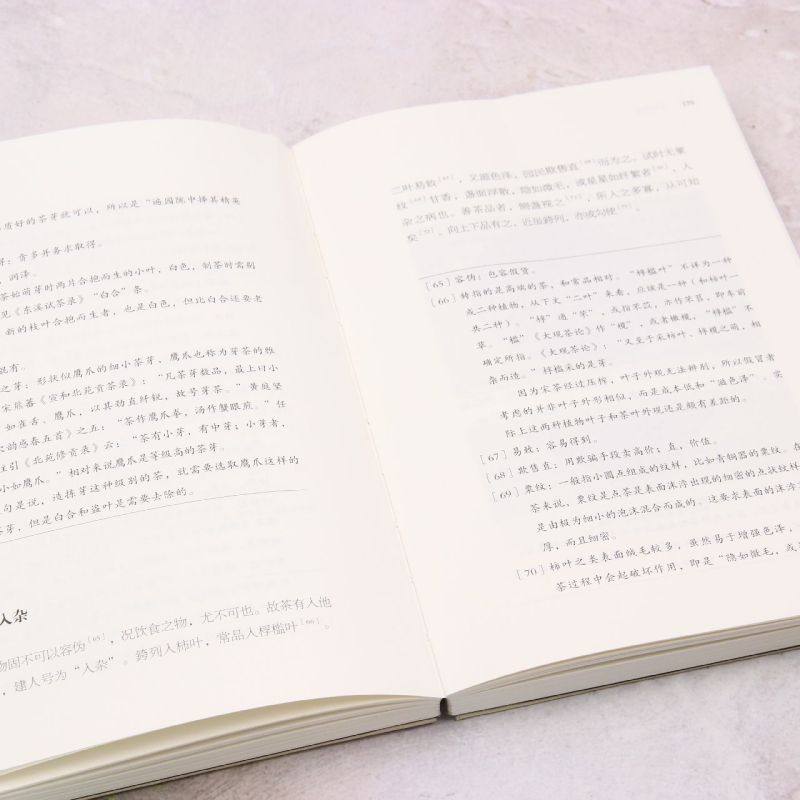 质好的茶芽就可以，所以是“遍园陇中择其精英
：贪多并务求取得。
润泽。
茶始萌芽时两片合抱而生的小叶，白色，制茶时需剔
见《东溪试茶录》“白合”条。
新的枝叶合抱而生者，也是白色，但比白合还要老
混有。
之芽：形状似鹰爪的细小茶芽，鹰爪也称为芽茶的雅
宋熊蕃《宣和北苑贡茶录》：“凡茶芽数品，最上曰小
如雀舌、鹰爪，以其劲直纤锐，故号芽茶。”黄庭坚
韵感春五首》之五：“茶作鹰爪拳，汤作蟹眼煎。”任
注引《北苑修贡录》云：“茶有小芽，有中芽；小芽者，
小如鹰爪。”相对来说鹰爪是等级高的芽茶。
句是说，违拣芽这种级别的茶，就需要选取鹰爪这样的
茶芽，但是白合和盗叶是需要去除的。
入杂
物固不可以容伪[65]，况饮食之物，尤不可也。故茶有入他
，建人号为“入杂”。銙列入柿叶，常品入桴槛叶[66]。
二叶易致[67]，又滋色泽，园民欺售直[68]而为之。试时无粟
纹[69]甘香，盏面浮散，隐如微毛，或星星如纤絮者[70]，入
杂之病也。善茶品者，侧盏视之[71]，所入之多寡，从可知
矣[72]。向上下品有之，近虽銙列，亦或勾使[73]。
[65] 容伪：包容假货。
[66] 銙指的是高端的茶，和常品相对。“桴槛叶”不详为一种
或二种植物，从下文“二叶”来看，应该是一种（和柿叶一
共二种）。“桴”通“苤”，或指苤苢，亦作芣苢，即车前
草。“槛”《大观茶论》作“榄”，或者橄榄，“桴槛”不
确定所指。《大观茶论》：“又至于采柿叶、桴榄之萌，相
杂而造。”桴槛采的是芽。
因为宋茶经过压榨，叶子外观无法辨别，所以假冒者
考虑的并非叶子外形相似，而是成本低和“滋色泽”。实
际上这两种植物叶子和茶叶外观还是颇有差距的。
[67] 易致：容易得到。
[68] 欺售直：用欺骗手段卖高价；直，价值。
[69] 粟纹：一般指小圆点组成的纹样，比如青铜器的粟纹。在
茶来说，粟纹是点茶是表面沫浡出现的细密的点状纹样
是由极为细小的泡沫混合而成的。这要求表面的沫浡
厚，而且细密。
[70] 柿叶之类表面绒毛较多，虽然易于增强色泽，
茶过程中会起破坏作用，即是“隐如微毛，或